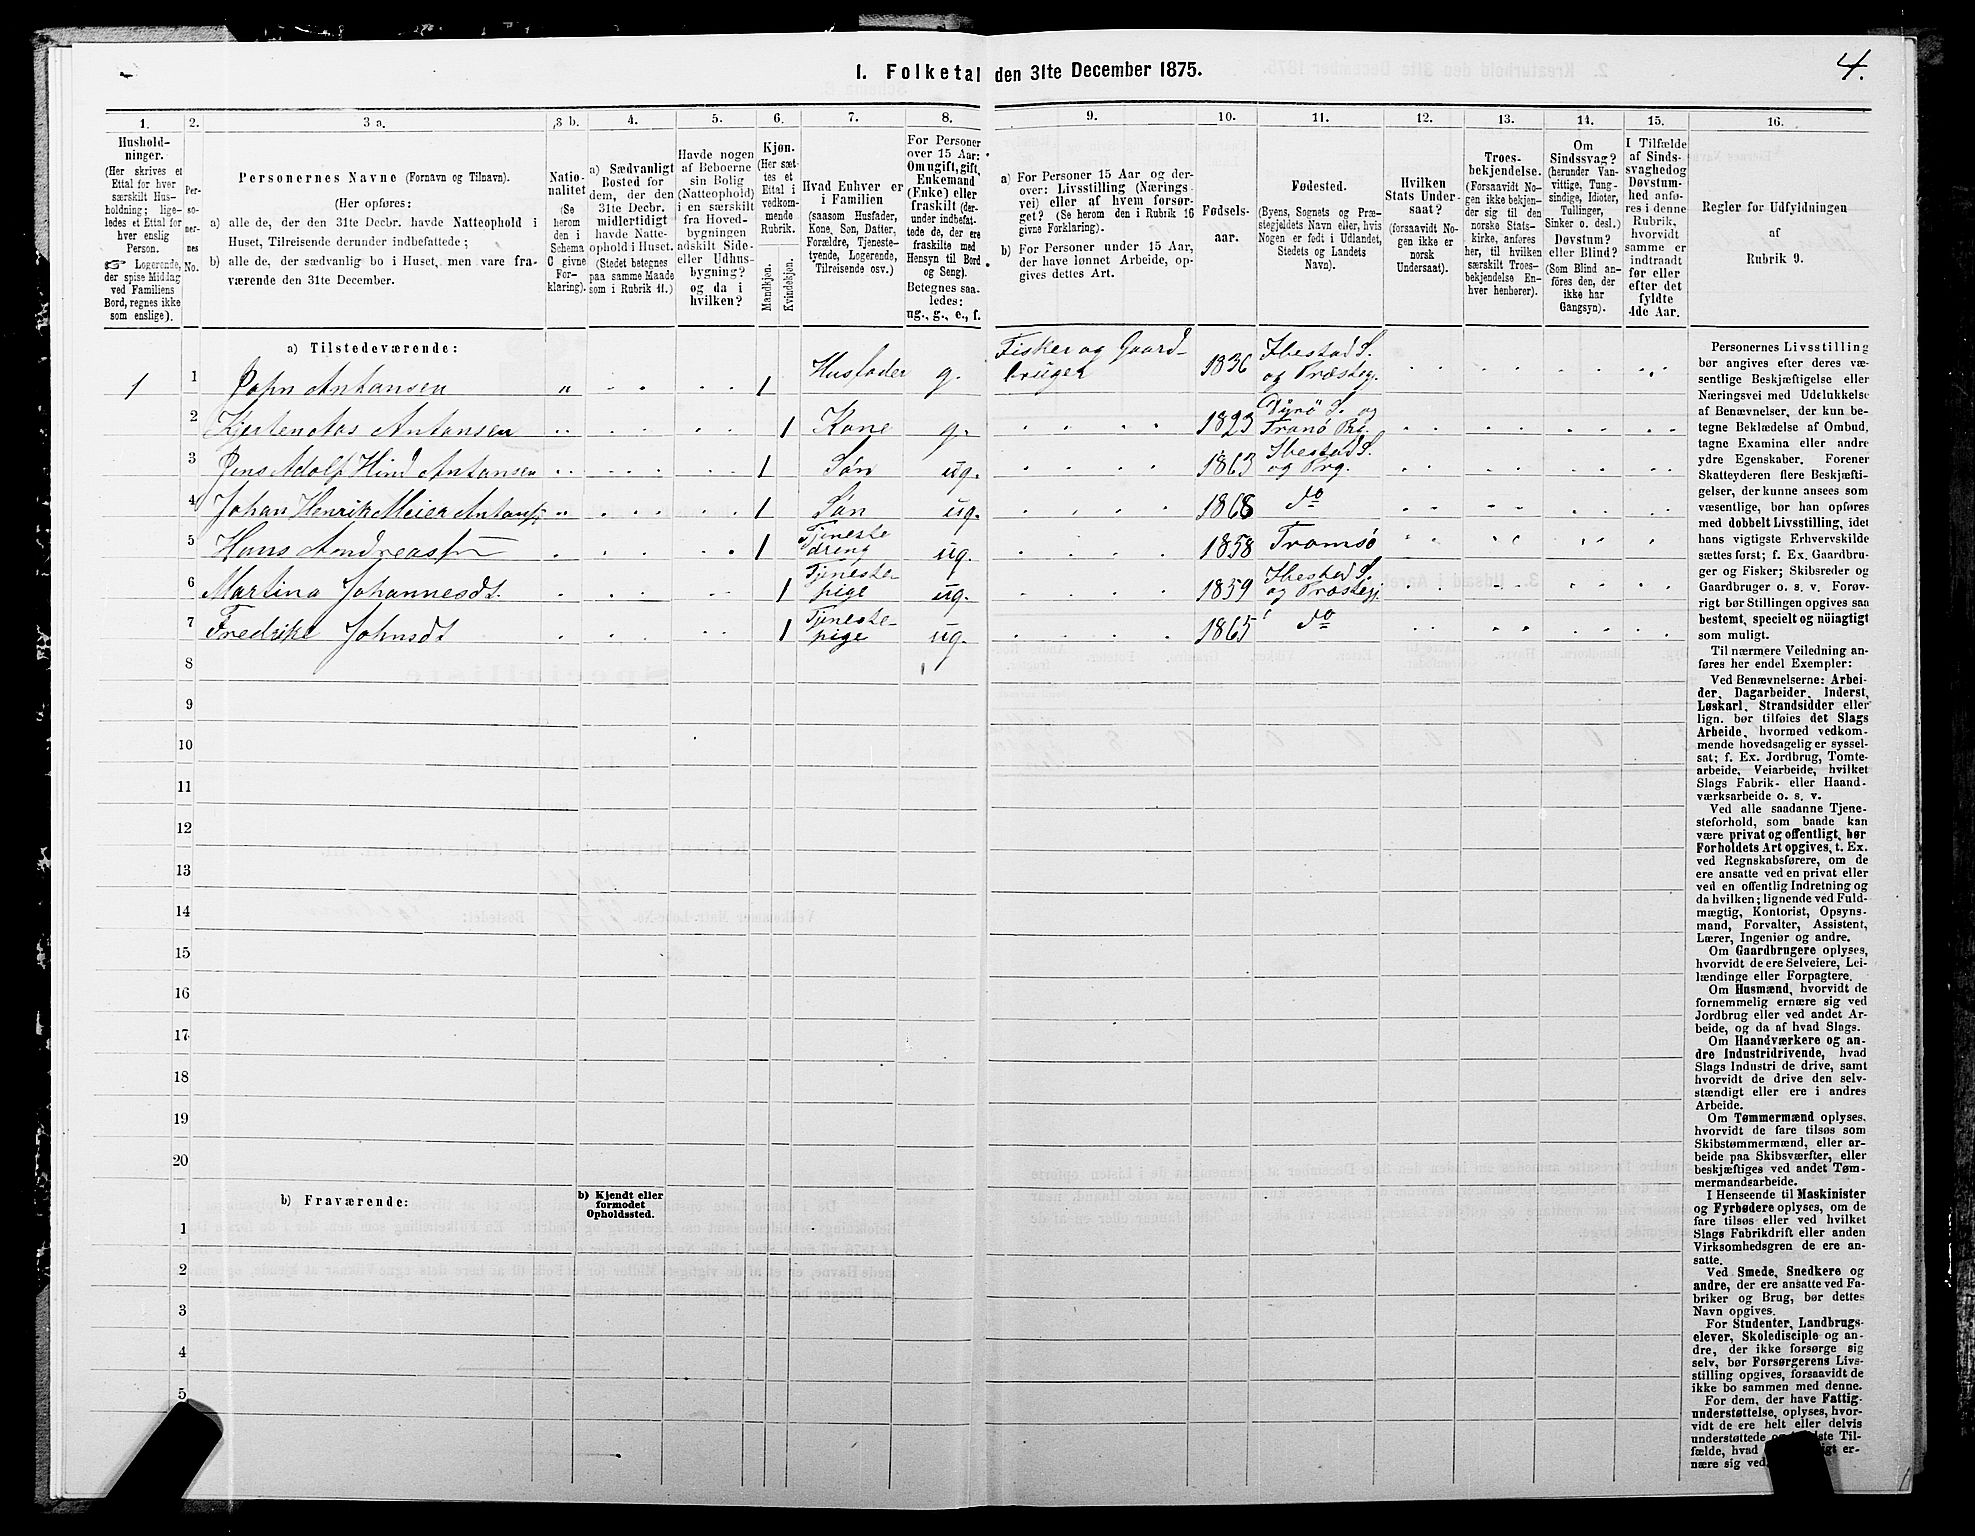 4.
I. Folketal den 31te December 1875.
1. 2. 3 a. 3 b. 4. 5. 6. 7. 8. 9. 10. 11. 12. 13. 14. 15. 16.
Hushold-
ninger.
(Her skrives et
Ettal for hver
særskilt Hus-
holdning; lige-
ledes et Ettal for
hver enslig
Person.
☞ Logerende,
der spise Middag
ved Familiens
Bord, regnes ikke
som enslige).
Per-
so-
ner-
nes
No.
Personernes Navne (Fornavn og Tilnavn).
(Her opføres:
a) alle de, der den 31te Decbr. havde Natteophold i
Huset, Tilreisende derunder indbefattede;
b) alle de, der sædvanlig bo i Huset, men vare fra-
værende den 31te December.
Natio-
nalitet
(Se
herom
den i
Schema
C givne
For-
klaring).
a) Sædvanligt
Bosted for
dem, der den
31te Decbr.
midlertidigt
havde Natte-
ophold i Huset.
(Stedet betegnes
paa samme Maade
som i Rubrik 11.)
Havde nogen
af Beboerne
sin Bolig
(Natteophold)
i en særskilt
fra Hoved-
bygningen
adskilt Side-
eller Udhus-
bygning?
og da i
hvilken?
Kjøn.
(Her sæt-
tes et
Ettal i
vedkom-
mende
Rubrik.
Mandkjøn.
Kvindekjøn.
Hvad Enhver er
i Familien
(saasom Husfader,
Kone, Søn, Datter,
Forældre, Tjeneste-
tyende, Logerende,
Tilreisende osv.)
For Personer
over 15 Aar:
Om ugift, gift,
Enkemand
(Enke) eller
fraskilt (der-
under indbefat-
tede de, der ere
fraskilte med
Hensyn til Bord
og Seng).
Betegnes saa-
ledes:
ug., g., e., f.
a) For Personer 15 Aar og der-
over: Livsstilling (Nærings-
vei) eller af hvem forsør-
get? (Se herom den i Rubrik 16
givne Forklaring).
b) For Personer under 15 Aar,
der have lønnet Arbeide, op-
gives dettes Art.
Fødsels-
aar.
Fødested.
(Byens, Sognets og Præ-
stegjeldets Navn eller, hvis
Nogen er født i Udlandet,
Stedets og Landets
Navn).
Hvilken
Stats Under-
saat?
(forsaavidt No-
gen ikke er
norsk
Undersaat).
Troes-
bekjendelse.
(Forsaavidt No-
gen ikke bekjen-
der sig til den
norske Stats-
kirke, anføres
her, til hvilken
særskilt Troes-
bekjendelse En-
hver henhører).
Om
Sindssvag?
(herunder Van-
vittige, Tung-
sindige, Idioter,
Tullinger,
Sinker o. desl.)
Døvstum?
eller Blind?
(Som Blind an-
føres den, der
ikke har
Gangsyn).
I Tilfælde
af Sinds-
svaghed og
Døvstum-
hed anfø-
res i denne
Rubrik,
hvorvidt
samme er
indtraadt
før eller
efter det
fyldte
4de Aar.
Regler for Udfyldningen
af
Rubrik 9.
a) Tilstedeværende:
1 1 Antansen " 1 Husfader g. Fisker og Gaard-bruger 1836 Ibestad S. og Præsteg.
2 Antansen 1 Kone g. 1823 Dyrø S. og Tranø Prg.
3 Jens Adolf Hind Antansen 1 Søn ug. 1863 Ibestad S. og Prg.
4 Johan Henrik Meier 1 Søn ug. 1868 do
5 Hans 1 Tjeneste dreng ug. 1858 Tromsø
6 Martina Johannesdt. 1 Tjeneste-pige ug. 1859 Ibestad S. og Præstegj.
7 Fredrike Johnsdt 1 Tjeneste-pige ug. 1865 do
8
9
10
11
12
13
14
15
16
17
18
19
20
b) Fraværende: b) Kjendt eller
formodet
Opholdssted.
1
2
3
4
5
Personernes Livsstilling
bør angives efter deres væ-
sentlige Beskjæftigelse eller
Næringsvei med Udelukkelse
af Benævnelser, der kun be-
tegne Beklædelse af Ombud,
tagne Examina eller andre
ydre Egenskaber. Forener
Skatteyderen flere Beskjæfti-
gelser, der kunne ansees som
væsentlige, bør han opføres
med dobbelt Livsstilling, idet
hans vigtigste Erhvervskilde
sættes først; f. Ex. Gaardbru-
ger og Fisker; Skibsreder og
Gaardbruger o. s. v. Forøv-
rigt bør Stillingen opgives saa
bestemt, specielt og nöiagtigt
som muligt.
Til nærmere Veiledning an-
føres her endel Exempler:
Ved Benævnelserne: Arbei-
der, Dagarbeider, Inderst,
Løskarl, Strandsidder eller
lign. bør tilføies det Slags
Arbeide, hvormed vedkom-
mende hovedsagelig er syssel-
sat; f. Ex. Jordbrug, Tomte-
arbeide, Veiarbeide, hvilket
Slags Fabrik- eller Haand-
værksarbeide o. s. v.
Ved alle saadanne Tjene-
steforhold, som baade kan
være privat og offentligt, bør
Forholdets Art opgives, t. Ex.
ved Regnskabsførere, om de
ere ansatte ved en privat eller
ved en offentlig Indretning og
da hvilken; lignende ved Fuld-
mægtig, Kontorist, Opsyns-
mand, Forvalter, Assistent,
Lærer, Ingeniør og andre.
Om Gaardbrugere oplyses,
hvorvidt de ere Selveiere, Lei-
lændinge eller Forpagtere.
Om Husmænd, hvorvidt de
fornemmelig ernære sig ved
Jordbrug eller ved andet Ar-
beide, og da af hvad Slags.
Om Haandværkere og an-
dre Industridrivende, hvad
Slags Industri de drive, samt
hvorvidt de drive den selv-
stændigt eller ere i andres
Arbeide.
Om Tømmermænd oplyses,
hvorvidt de fare tilsøs som
Skibstømmermænd, eller ar-
beide paa Skibsværfter, eller
beskjæftiges ved andet Tøm-
mermandsarbeide.
I Henseende til Maskinister
og Fyrbødere oplyses, om de
fare tilsøs eller ved hvilket
Slags Fabrikdrift eller anden
Virksomhedsgren de ere an-
satte.
Ved Smede, Snedkere og
andre, der ere ansatte ved Fa-
briker og Brug, bør dettes
Navn opgives.
For Studenter, Landbrugs-
elever, Skoledisciple og an-
dre, der ikke forsørge sig
selv, bør Forsørgerens Livs-
stilling opgives, forsaavidt de
ikke bo sammen med denne.
For dem, der have Fattig-
understøttelse, oplyses, hvor-
vidt de ere helt eller delvis
understøttede
fælde, hvad
nære sig ved.